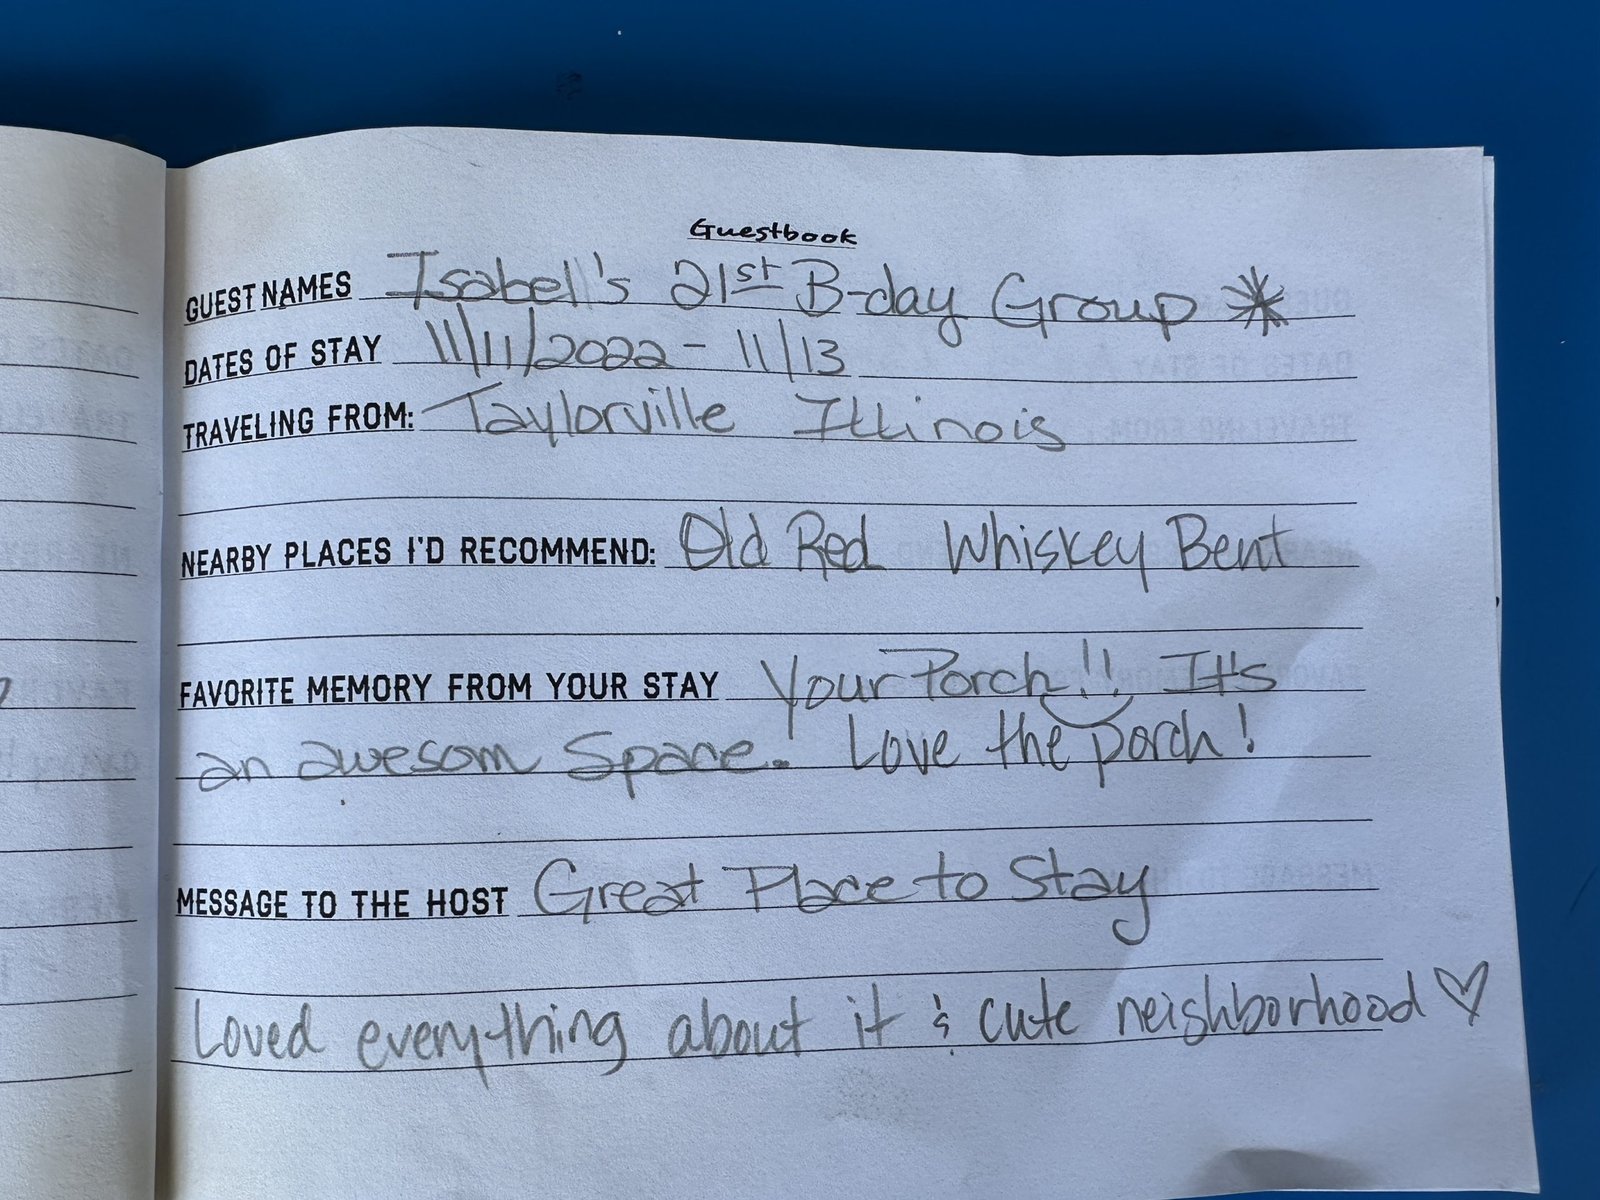 Guestbook
GUEST NAMES Isabell's 21st B-day Group
DATES OF STAY 11/11/2022 - 11/13
TRAVELING FROM: Taylorville Illinois
NEARBY PLACES I'D RECOMMEND: Old Red Whiskey Bent
FAVORITE MEMORY FROM YOUR STAY Your Porch!! It's
an awesom space. Love the porch!
MESSAGE TO THE HOST Great Place to Stay
Loved everything about it & cute neishborhood ♡